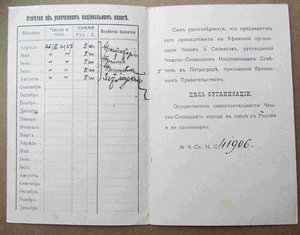 Отмѣтки объ уплоченномъ національномъ налогѣ.
Мѣсяцъ.
Число и годъ.
СУММА
Руб. К.
Подпись казначея
Апрѣль
5.00
Май
5.00
Іюнь
5.00
Іюль
5.00
Августъ
5.00
Сентябрь
Октябрь
Ноябрь
Декабрь
Январь
Февраль
Мартъ
Апрѣль
Май
Іюнь
Іюль
Августъ
Сентябрь
Октябрь
Ноябрь
Декабрь
Симъ удостовѣряется, что предъявитель
сего принадлежитъ къ Уфимской органи-
заціи Чеховъ и Словаковъ, руководимой
Чешско-Словацкимъ Національнымъ Совѣ-
томъ въ Петроградѣ, признанной Времен-
нымъ Правительствомъ.
ЦѢЛЬ ОРГАНИЗАЦІИ:
Осуществленіе самостоятельности Чешско-
Словацкаго народа въ союзѣ съ Россіей
и ея союзниками.
№ Ч.-Сл. Н. С. 41906.